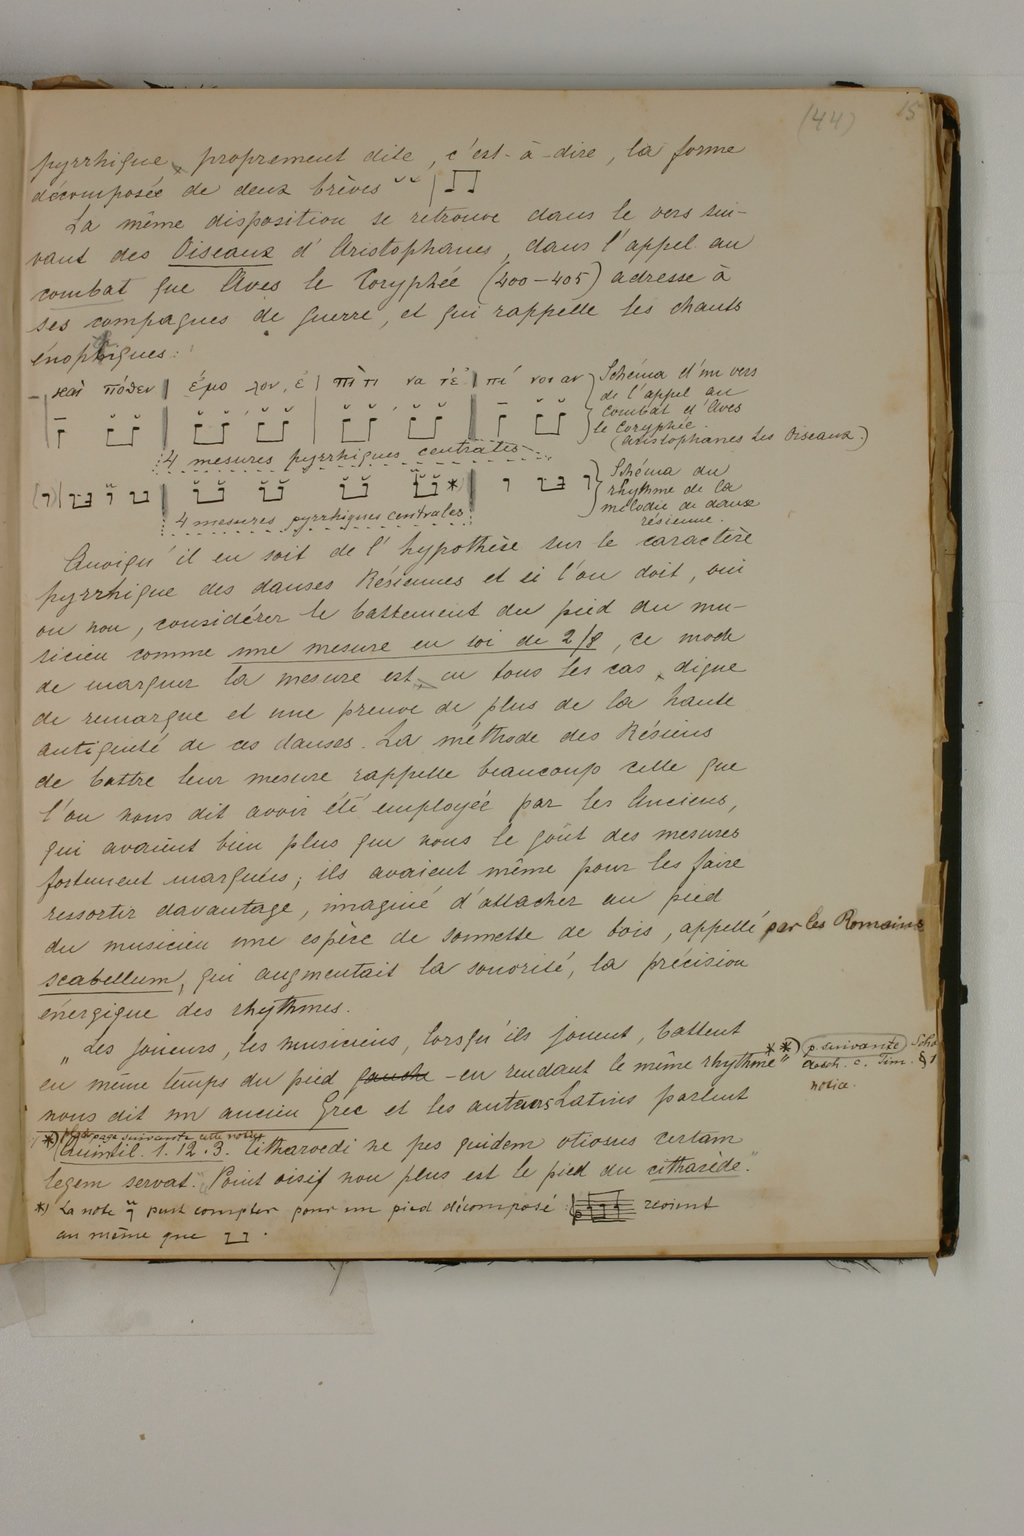 (44) 15
pyrrhique, proprement dite, c'est-à-dire, la forme
décomposée de deux brèves ˘ ˘ | ♫
La même disposition se retrouve dans le vers sui-
vant des Oiseaux d'Aristophanes, dans l'appel au
combat que Aves le Coryphée (400-405) adresse à
ses compagnes de guerre, et qui rappelle les chants
énophiques:
καὶ πόθεν | έμο λον, έ | πὶ τι να τέ | πί νοι αν
Schéma d'un vers
de l'appel au
combat d'Aves
le Coryphée.
(Aristophanes Les Oiseaux.)
4 mesures pyrrhiques centrales
Schéma du
rhythme de la
mélodie de danse
résienne.
4 mesures pyrrhiques centrales
Quoiqu'il en soit de l'hypothèse sur le caractère
pyrrhique des danses Résiennes et si l'on doit, oui
ou non, considérer le battement du pied du mu-
sicien comme une mesure en soi de 2/8, ce mode
de marquer la mesure est, en tous les cas, digne
de remarque et une preuve de plus de la haute
antiquité de ces danses. La méthode des Résiens
de battre leur mesure rappelle beaucoup celle que
l'on nous dit avoir été employée par les Anciens,
qui avaient bien plus que nous le goût des mesures
fortement marquées; ils avaient même pour les faire
ressortir davantage, imaginé d'attacher au pied
du musicien une espèce de sonnette de bois, appellé par les Romains
scabellum, qui augmentait la sonorité, la précision
énergique des rhythmes.
„Les joueurs, les musiciens, lorsqu'ils jouent, battent
en même temps du pied gauche - en rendant le même rhythme"
**) p. suivante
Aesch. c. Tim. § 1
notice.
nous dit un ancien Grec et les auteurs Latins parlent
*) page suivante cette note
Quintil. 1. 12. 3. Citharoedi ne pes quidem otiosus certam
legem servat. "Point oisif non plus est le pied du citharède."
*) La note peut compter pour un pied décomposé: revient
au même que